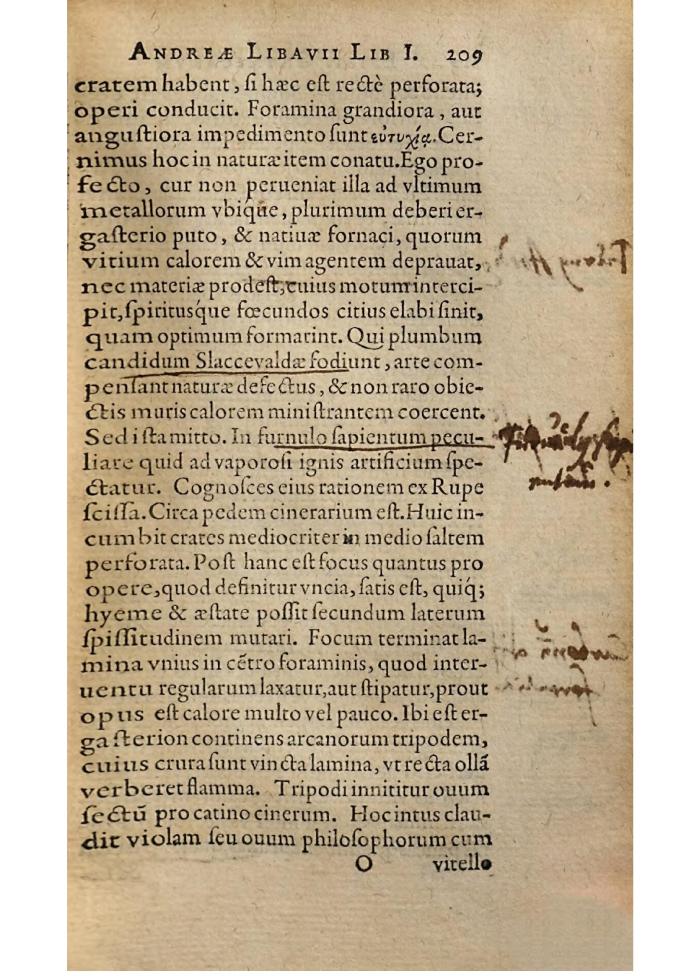 ANDREÆ LIBAVII LIB I. 209
cratem habent, ſi hæc eſt rectè perforata;
operi conducit. Foramina grandiora, aut
anguſtiora impedimento ſunt εὐτυχίᾳ. Cer-
nimus hoc in naturæ item conatu. Ego pro-
fecto, cur non perueniat illa ad vltimum
metallorum vbique, plurimum deberi er-
gaſterio puto, & natiuæ fornaci, quorum
vitium calorem & vim agentem deprauat,
nec materiæ prodeſt, cuius motum interci-
pit, ſpiritusq́ue fœcundos citius elabi ſinit,
quam optimum formarint. Qui plumbum
candidum Slaccevaldæ fodiunt, arte com-
penſant naturæ defectus, & non raro obie-
ctis muris calorem miniſtrantem coercent.
Sed iſta mitto. In furnulo ſapientum pecu-
liare quid ad vaporoſi ignis artificium ſpe-
ctatur. Cognoſces eius rationem ex Rupe
ſciſſa. Circa pedem cinerarium eſt. Huic in-
cumbit crates mediocriter in medio ſaltem
perforata. Poſt hanc eſt focus quantus pro
opere, quod definitur vncia, ſatis eſt, quiq́;
hyeme & æſtate poſſit ſecundum laterum
ſpiſſitudinem mutari. Focum terminat la-
mina vnius in cētro foraminis, quod inter-
uentu regularum laxatur, aut ſtipatur, prout
opus eſt calore multo vel pauco. Ibi eſt er-
gaſterion continens arcanorum tripodem,
cuius crura ſunt vincta lamina, vt recta ollā
verberet flamma. Tripodi innititur ouum
ſectū pro catino cinerum. Hoc intus clau-
dit violam ſeu ouum philoſophorum cum
O vitello